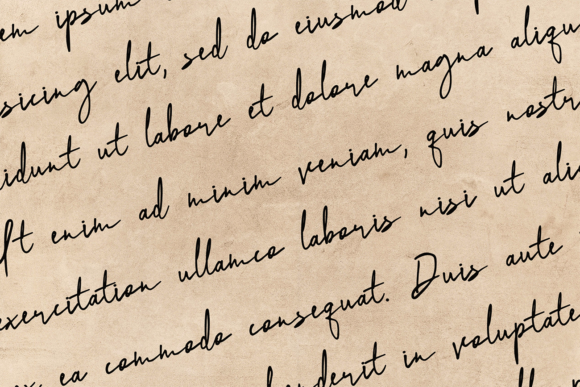 em ipsum
sicing elit, sed do eiusmod
idunt ut labore et dolore magna aliqu
Ut enim ad minim veniam, quis nostr
exercitation ullamco laboris nisi ut ali
ex ea commodo consequat. Duis aute
henderit in voluptate